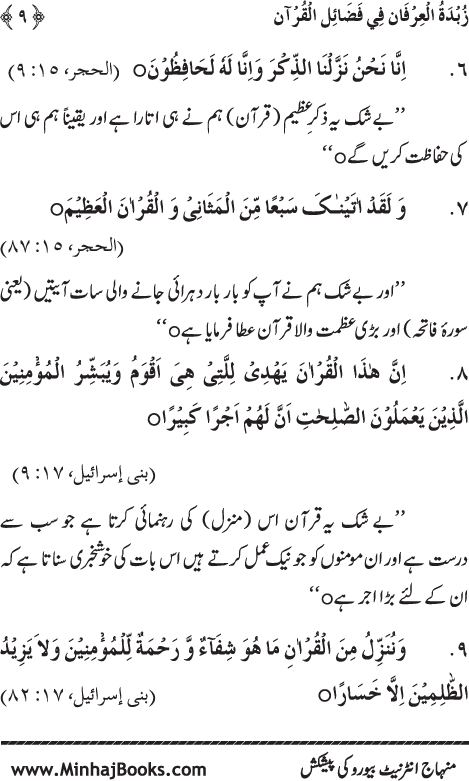 زُبْدَةُ الْعِرْفَانِ فِي فَضَائِلِ الْقُرْآنِ ﴿۹﴾
۶. اِنَّا نَحْنُ نَزَّلْنَا الذِّكْرَ وَاِنَّا لَهٗ لَحٰفِظُوْنَo (الحجر، ۱۵: ۹)
’’بے شک یہ ذکرِ عظیم (قرآن) ہم نے ہی اتارا ہے اور یقیناً ہم ہی اس
کی حفاظت کریں گےo‘‘
۷. وَ لَقَدْ اٰتَيْنٰـکَ سَبْعًا مِّنَ الْمَثَانِيْ وَ الْقُرْاٰنَ الْعَظِيْمَo
(الحجر، ۱۵: ۸۷)
’’اور بے شک ہم نے آپ کو بار بار دہرائی جانے والی سات آیتیں (یعنی
سورۂ فاتحہ) اور بڑی عظمت والا قرآن عطا فرمایا ہےo‘‘
۸. اِنَّ هٰذَا الْقُرْاٰنَ يَهْدِيْ لِلَّتِيْ هِيَ اَقْوَمُ وَيُبَشِّرُ الْمُؤْمِنِيْنَ
الَّذِيْنَ يَعْمَلُوْنَ الصّٰلِحٰتِ اَنَّ لَهُمْ اَجْرًا كَبِيْرًاo
(بنی إسرائيل، ۱۷: ۹)
’’بے شک یہ قرآن اس (منزل) کی رہنمائی کرتا ہے جو سب سے
درست ہے اور ان مومنوں کو جو نیک عمل کرتے ہیں اس بات کی خوشخبری سناتا ہے کہ
ان کے لئے بڑا اجر ہےo‘‘
۹. وَنُنَزِّلُ مِنَ الْقُرْاٰنِ مَا هُوَ شِفَآءٌ وَّ رَحْمَةٌ لِّلْمُؤْمِنِيْنَ وَلاَ يَزِيْدُ
الظّٰلِمِيْنَ اِلَّا خَسَارًاo (بنی إسرائيل، ۱۷: ۸۲)
منہاج انٹرنیٹ بیورو کی پیشکش www.MinhajBooks.com